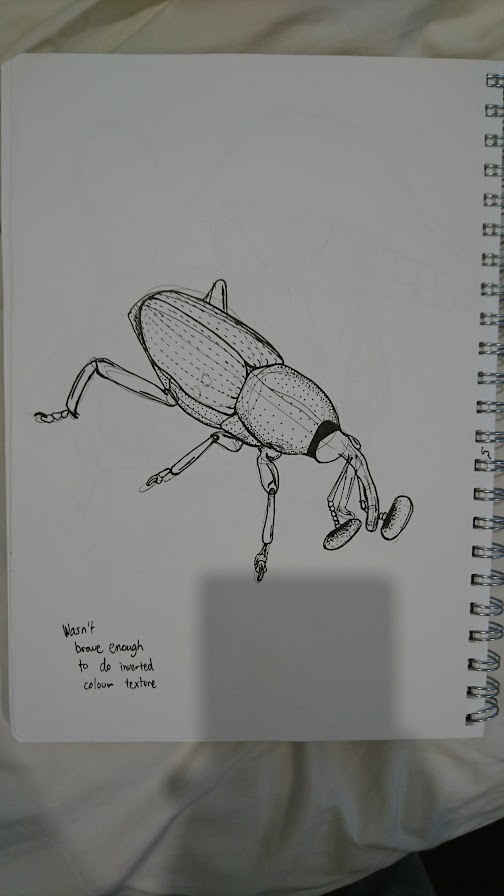 Wasn't
brave enough
to do inverted
colour texture